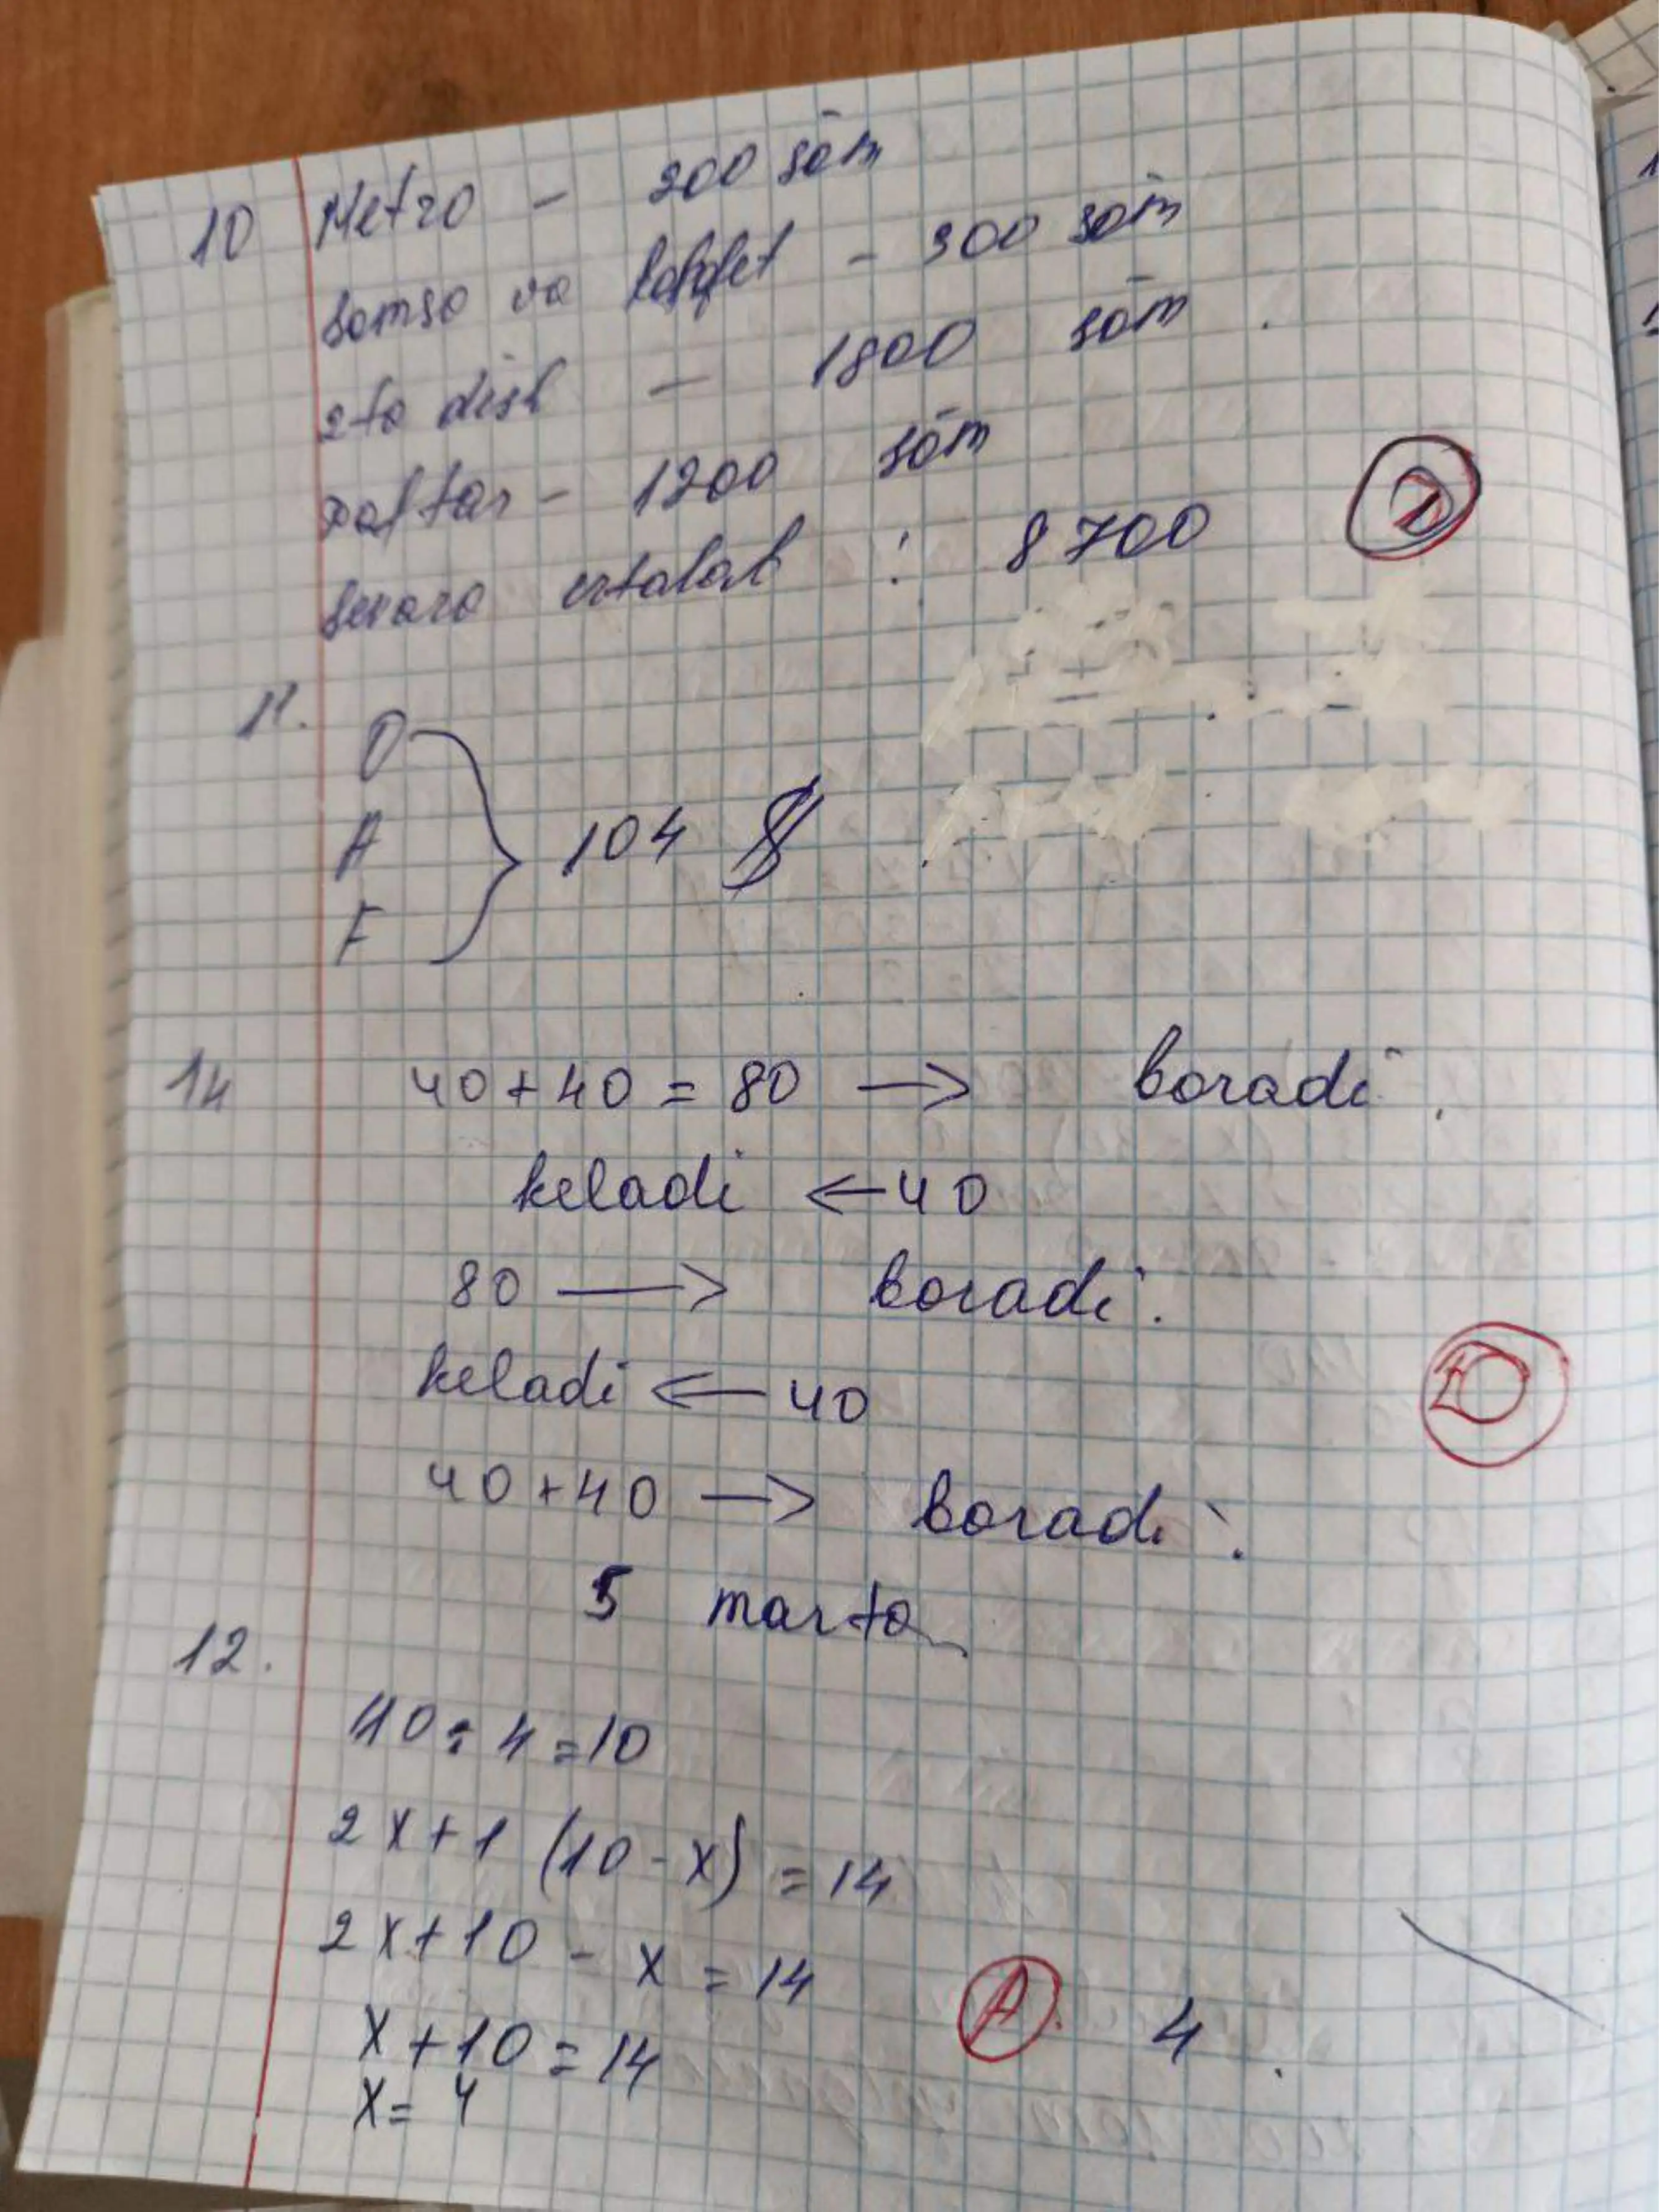 10 Metro - 200 sōm
somsa va - 900 sōm
2ta dish - 1800 sōm
Daftar - 1200 sōm
sevara ertalab : 8700
11. O
A 104 $
F
14 40+40=80 → boradi.
keladi ← 40
80 → boradi.
keladi ← 40
40+40 → boradi.
5 marta
12.
40:4=10
2x+1(10-x)=14
2x+10-x=14
x+10=14 A. 4.
x=4